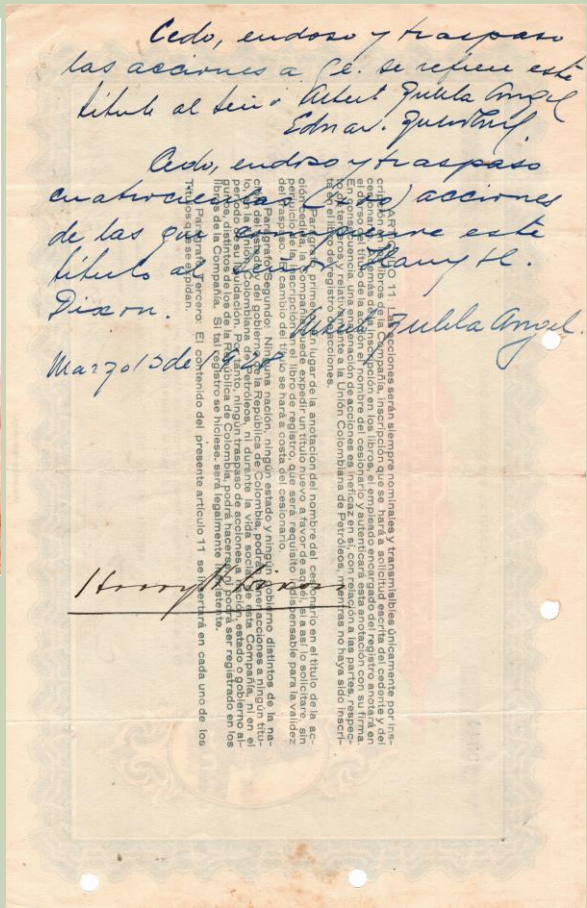 Cedo, endoso y traspaso
las acciones a qe. se refiere este
título al señor Albert Zulila Angel
Cedo, endoso y traspaso
cuatrocientas acciones
de las que se compone este
título al señor Harry H.
Dixon.
Albert Zulila Angel
Marzo 15 de
ARTICULO 11. Las acciones serán siempre nominales y transmisibles únicamente por ins-
cripción en los libros de la Compañía, inscripción que se hará a solicitud escrita del cedente y del
cesionario. Además de la inscripción en los libros, el empleado encargado del registro anotará en
el dorso del título de la acción el nombre del cesionario y autenticará esta anotación con su firma.
En consecuencia, una enajenación de acciones es ineficaz en sí, con relación a las partes, respec-
to de terceros, y relativamente a la Unión Colombiana de Petróleos, mientras no haya sido inscri-
ta en el libro de registro de acciones.
Parágrafo primero. En lugar de la anotación del nombre del cesionario en el título de la ac-
ción cedida, la compañía puede expedir un título nuevo a favor de aquél, si a así lo solicitare, sin
perjuicio de la inscripción en el libro de registro, que será requisito indispensable para la validez
del traspaso. El cambio del título se hará a costa del cesionario.
Parágrafo Segundo: Ninguna nación, ningún estado y ningún gobierno distintos de la na-
ción, del estado y del gobierno de la República de Colombia, podrá tener acciones a ningún títu-
lo, en la Unión Colombiana de Petróleos, ni durante la vida social de esta Compañía, ni en el
período de su liquidación. Por tanto, ningún traspaso de acciones a nación, estado o gobierno al-
guno, distintos de los de la República de Colombia, podrá hacerse ni podrá ser registrado en los
libros de la Compañía. Si tal registro se hiciese, será legalmente inexistente.
Parágrafo Tercero: El contenido del presente artículo 11 se insertará en cada uno de los
Títulos que se expidan.
Harry H Dixon